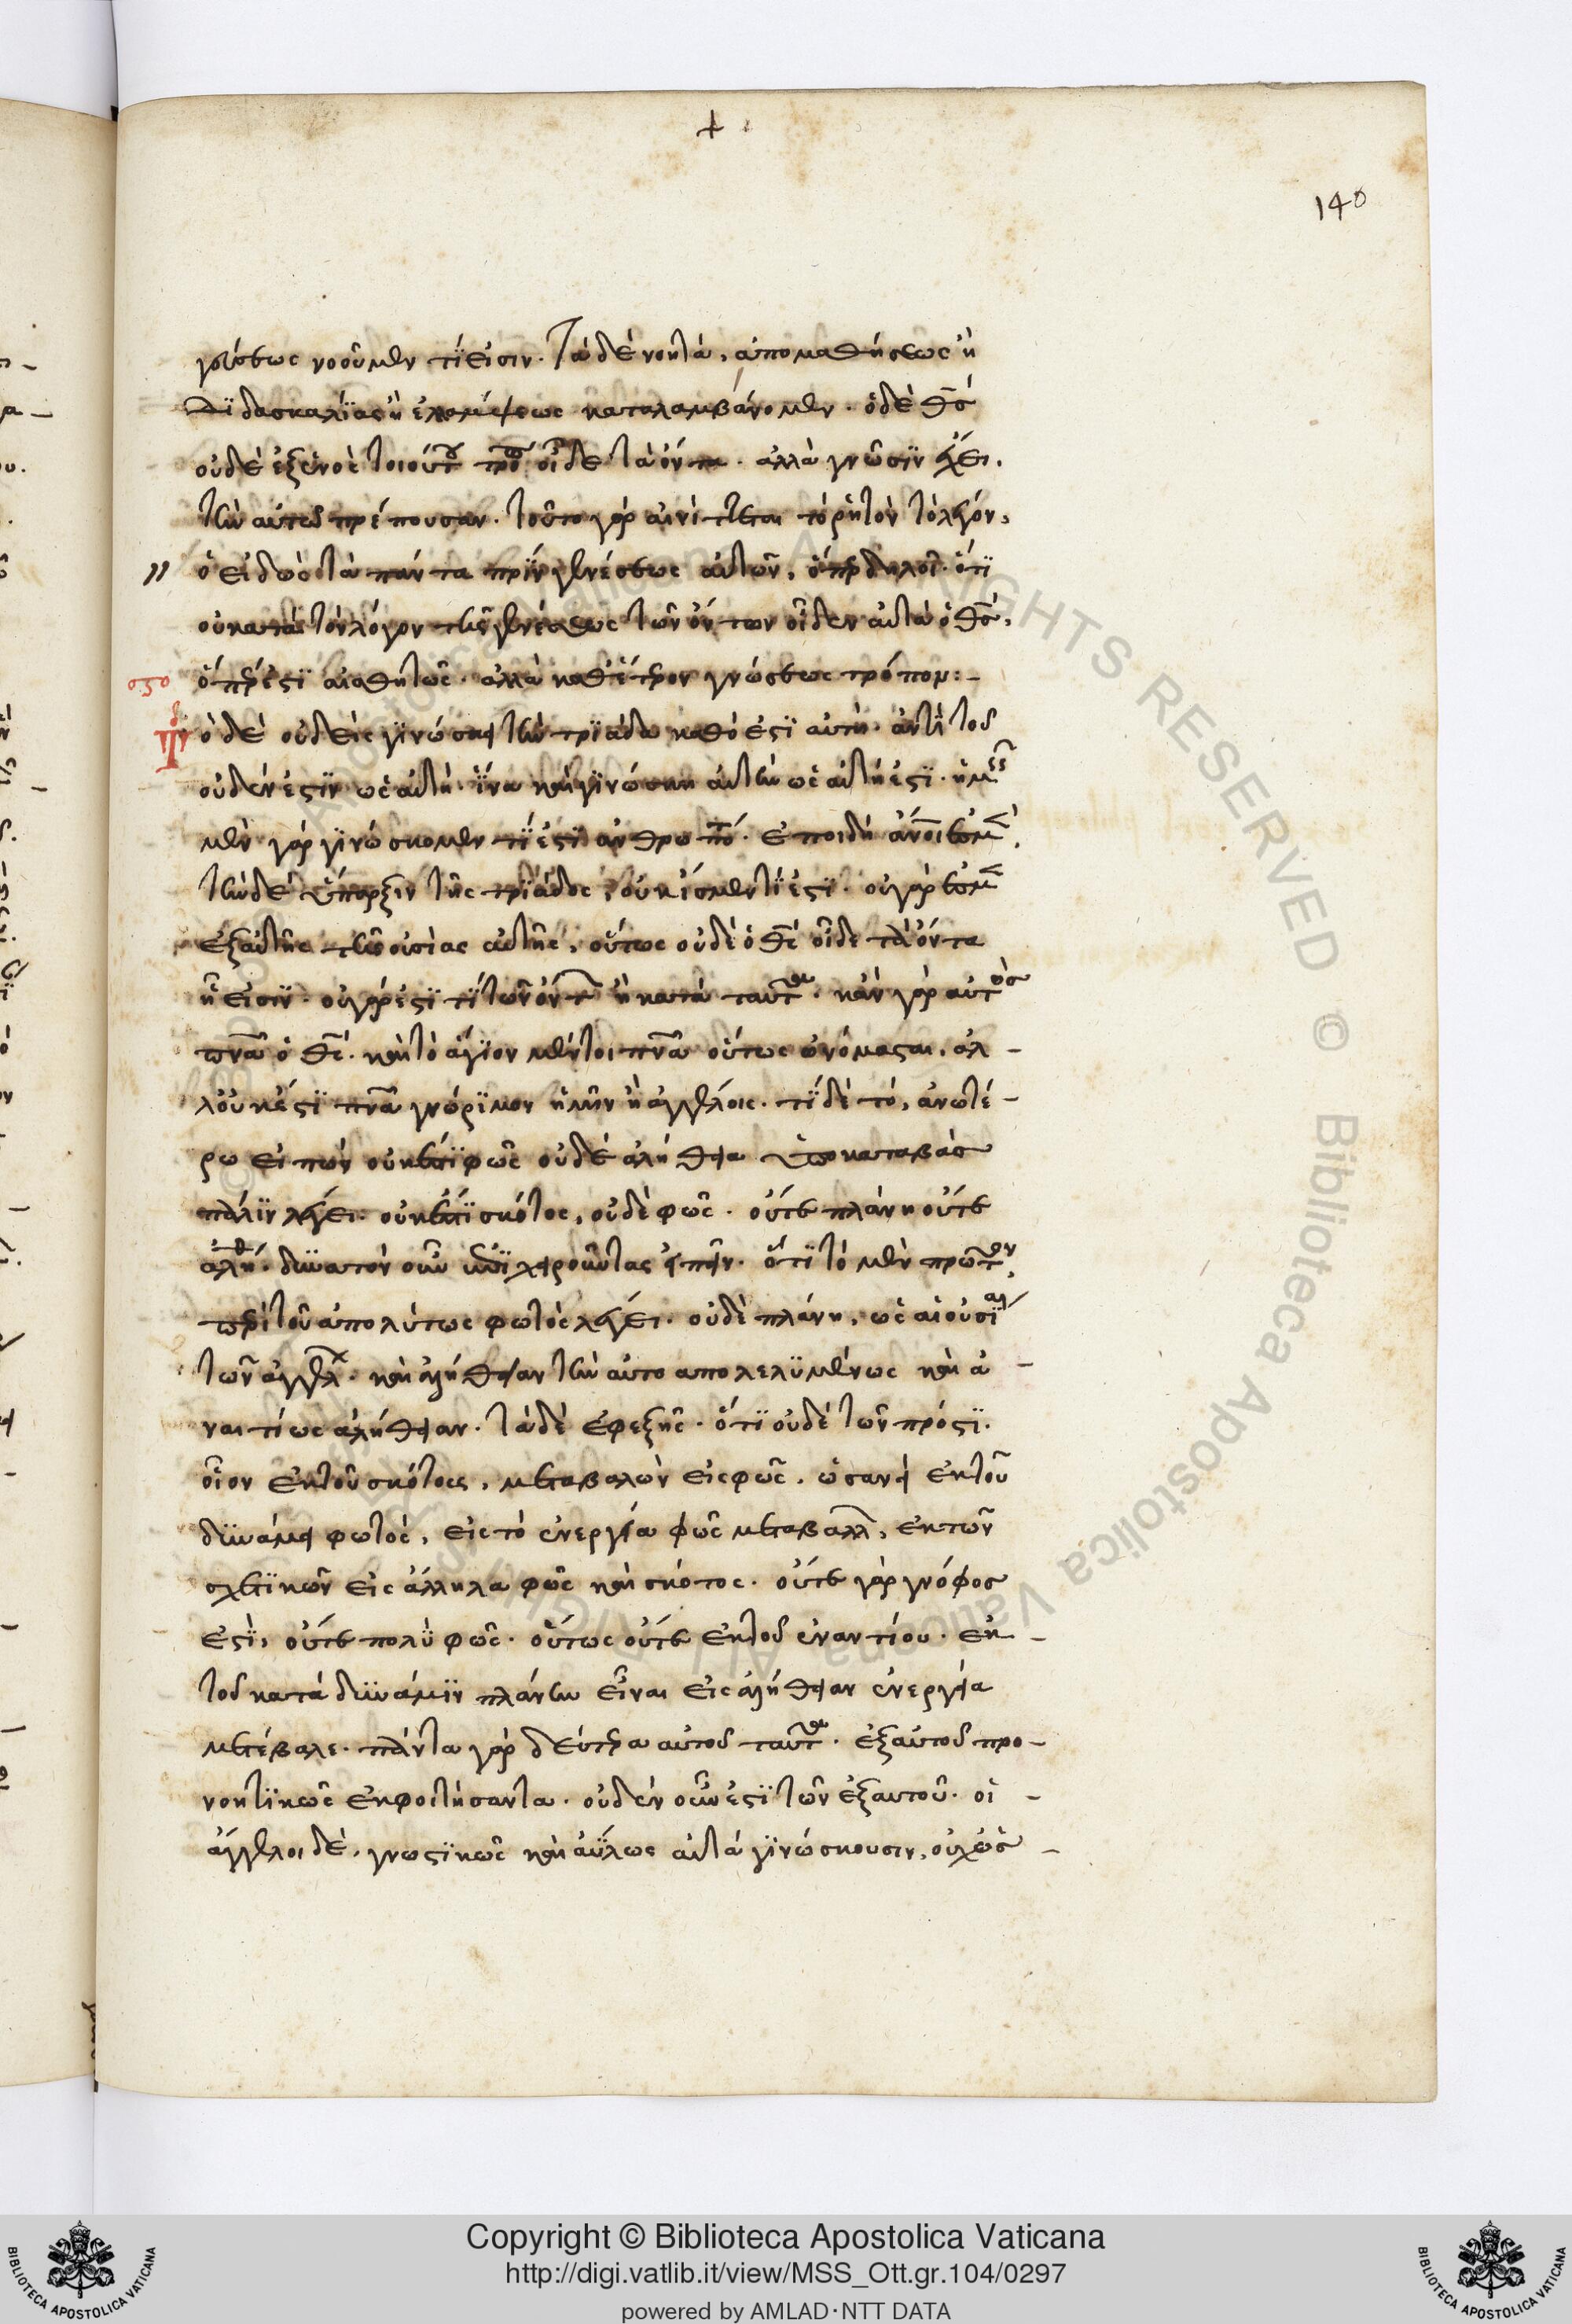 +
140
γεύσεως νοοῦμεν τί εἰσιν. Τὰ δὲ νοητὰ, ἀπο μαθήσεως ἢ
διδασκαλίας ἢ ἐλλάμψεως καταλαμβάνομεν. ὁ δὲ θ̅ς
οὐδὲ ἐξενὸς τοιούτου τρόπου οἶδε τὰ ὄντα. ἀλλὰ γνῶσιν ἔχει.
τὴν αὐτῶ πρέπουσαν. τοῦτο γὰρ αἰνίττεται τὸ ρητὸν τὸ λέγον,
" ὁ εἰδὼς τὰ πάντα πρὶν γενέσεως αὐτῶν, ὅπερ δηλοῖ. ὅτι
οὐ κατὰ τὸν λόγον τῆς γενέσεως τῶν ὄντων οἶδεν αὐτὰ ὁ θ̅ς,
ὅπερ ἐστὶ αἰσθητῶς. ἀλλὰ καθ' ἕτερον γνώσεως τρόπον:-
ὁ δὲ οὐδεὶς γινώσκει τὴν τριάδα καθό ἐστι αὐτὴ. ἀντὶ τοῦ
οὐδέν ἐστιν ὡς αὐτὴ. ἵνα καὶ γινώσκη αὐτὴν ὡς αὐτή ἐστι. ἡμεῖς
μὲν γὰρ γινώσκομεν τί ἐστι ἀνθρωπο. ἐποιδὴ ἄνοι ἐσμὲν,
τὴν δὲ ὕπαρξιν τῆς τριάδος, οὐκ ἴσμεν τί ἐστι. οὐ γάρ ἐσμεν
ἐξαυτῆς τῆς οὐσίας αὐτῆς, οὕτως οὐδὲ ὁ θ̅ς οἶδε τὰ ὄντα
ἧ εἰσιν. οὐ γάρ ἐστι τὶ τῶν ὄντων ἢ κατὰ ταῦτα. κἂν γὰρ αὐτὸς
πν̅α ὁ θ̅ς. καὶ τὸ ἅγιον μέντοι πν̅α οὕτως ὠνόμασται. ἀλ-
λ' οὐκ ἔστι πν̅α γνώριμον ἡμῖν ἢ ἀγγέλοις. τί δὲ τό, ἀνωτέ-
ρω εἰπὼν οὐκ ἔστι φῶς οὐδὲ ἀλήθεια ὑποκαταβὰς
πάλιν λέγει. οὐκ ἔστι σκότος, οὐδὲ φῶς. οὔτε πλάνη οὔτε
ἀλήθ. δυνατὸν οὖν ἐπιχειροῦντας εἰπεῖν. ὅτι τὸ μὲν πρῶτον,
περὶ τοῦ ἀπολύτως φωτὸς λέγει. οὐδὲ πλάνη, ὡς αἱ οὐσίαι
τῶν ἀγγέλ. καὶ ἀλήθειαν τὴν αὐτο ἀπολελυμένως καὶ ἀ-
ναιτίως ἀλήθειαν. τὰ δὲ ἐφεξῆς. ὅτι οὐδὲ τῶν πρός τι.
οἷον ἐκ τοῦ σκότους, μεταβαλὼν εἰς φῶς. ὡσανεὶ ἐκ τοῦ
δυνάμει φωτὸς, εἰς τὸ ἐνεργεία φῶς μεταβαλλ, ἐκ τῶν
σχετικῶν εἰς ἄλληλα φῶς καὶ σκότος. οὔτε γὰρ γνόφος
ἐστὶ, οὔτε πολὺ φῶς. οὕτως οὔτε ἐκ τοῦ ἐναντίου. ἐκ-
τοῦ κατὰ δυνάμιν πλάνην εἶναι εἰς ἀλήθειαν ἐνεργεία
μετέβαλε. πάντα γὰρ δεύτερα αὐτοῦ ταῦτα. ἐξαυτοῦ προ-
νοητικῶς ἐκφοιτήσαντα. οὐδὲν οὖν ἐστι τῶν ἐξαυτοῦ. οἱ -
ἄγγελοι δὲ, γνωστικῶς καὶ ἀΰλως αὐτὰ γινώσκουσιν, οὐχ ὡς -
© Biblioteca Apostolica Vaticana ALL RIGHTS RESERVED
Copyright © Biblioteca Apostolica Vaticana
http://digi.vatlib.it/view/MSS_Ott.gr.104/0297
powered by AMLAD·NTT DATA
BIBLIOTECA APOSTOLICA VATICANA
BIBLIOTECA APOSTOLICA VATICANA